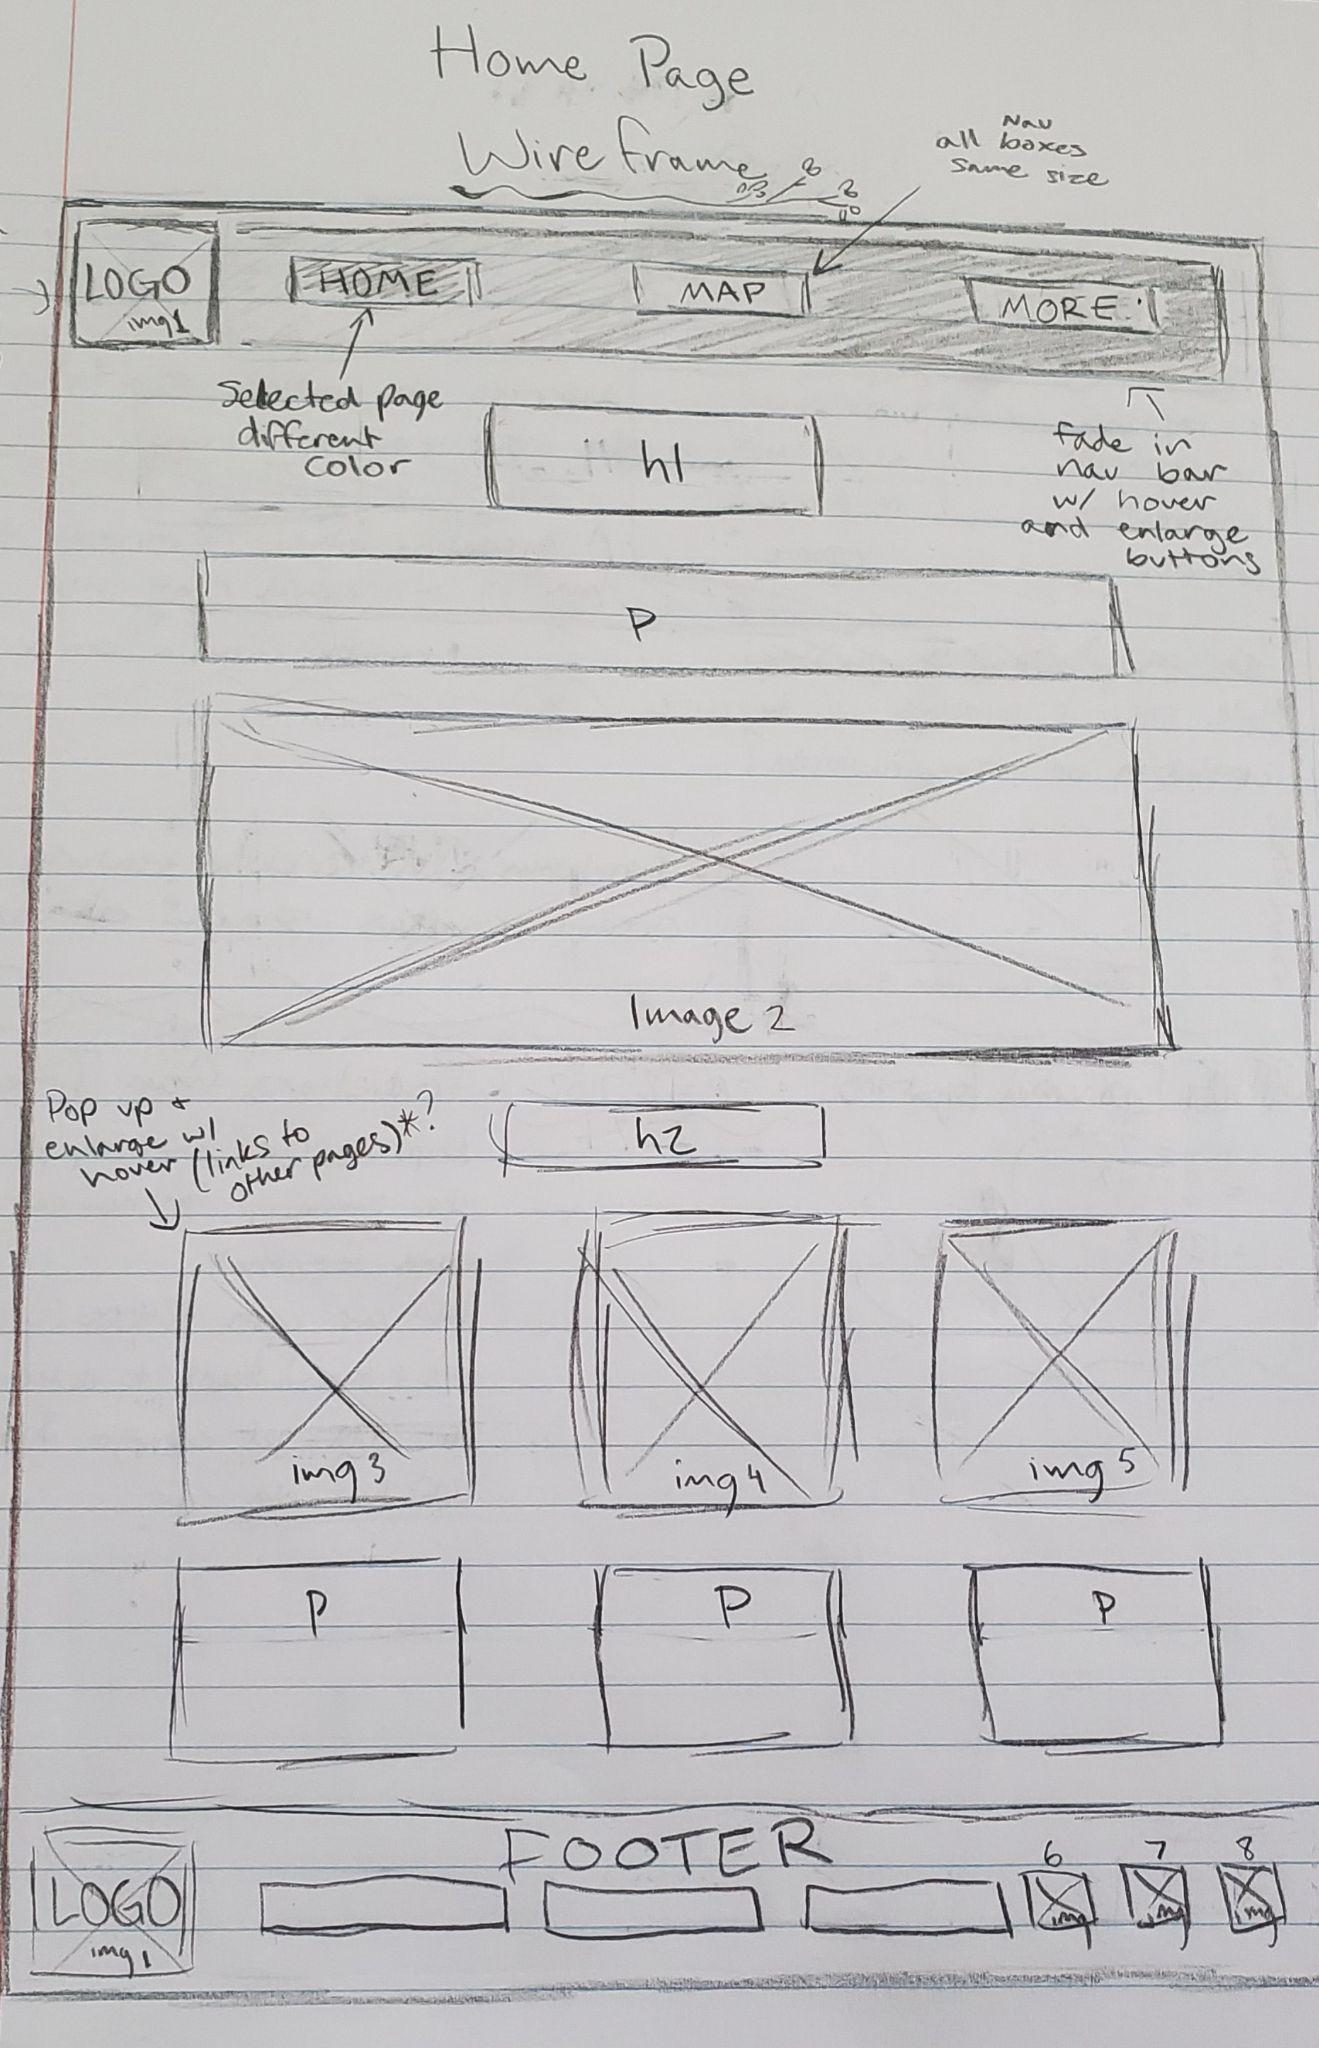 Home Page
Wireframe
Nav
all boxes
same size
LOGO
img1
HOME
MAP
MORE
Selected page
different
color
h1
fade in
nav bar
w/ hover
and enlarge
buttons
P
Image 2
Pop up +
enlarge w/
hover (links to
other pages)*?
h2
img 3
img 4
img 5
P
P
P
FOOTER
LOGO
img 1
6
7
8
img
img
img